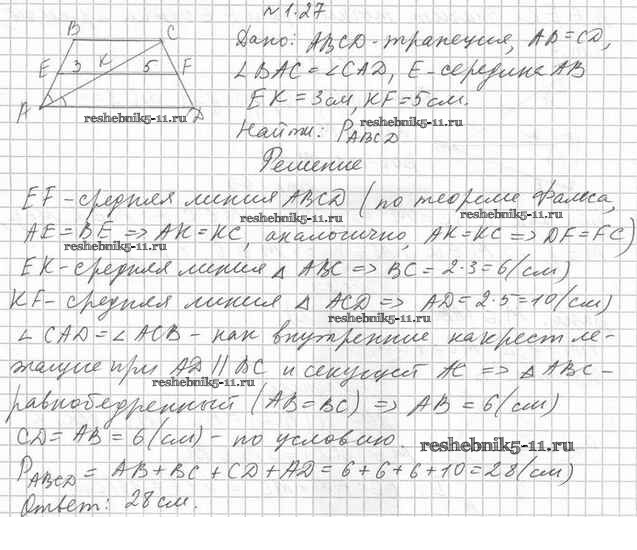 № 1.27
B C
E 3 K 5 F
A D
Дано: ABCD - трапеция, AB = CD,
∠BAC = ∠CAD, E - середина AB
EK = 3см, KF = 5см.
reshebnik5-11.ru
reshebnik5-11.ru
Найти: P_ABCD
Решение
EF - средняя линия ABCD (по теореме Фалеса,
reshebnik5-11.ru
reshebnik5-11.ru
AE = BE => AK = KC, аналогично, AK = KC => DF = FC)
reshebnik5-11.ru
EK - средняя линия △ ABC => BC = 2·3 = 6(см)
KF - средняя линия △ ACD => AD = 2·5 = 10(см)
reshebnik5-11.ru
∠ CAD = ∠ACB - как внутренние накрест ле-
жащие при AD || BC и секущей AC => △ ABC -
reshebnik5-11.ru
равнобедренный (AB = BC) => AB = 6(см)
CD = AB = 6(см) - по условию.
reshebnik5-11.ru
P_ABCD = AB + BC + CD + AD = 6 + 6 + 6 + 10 = 28(см)
Ответ: 28см.